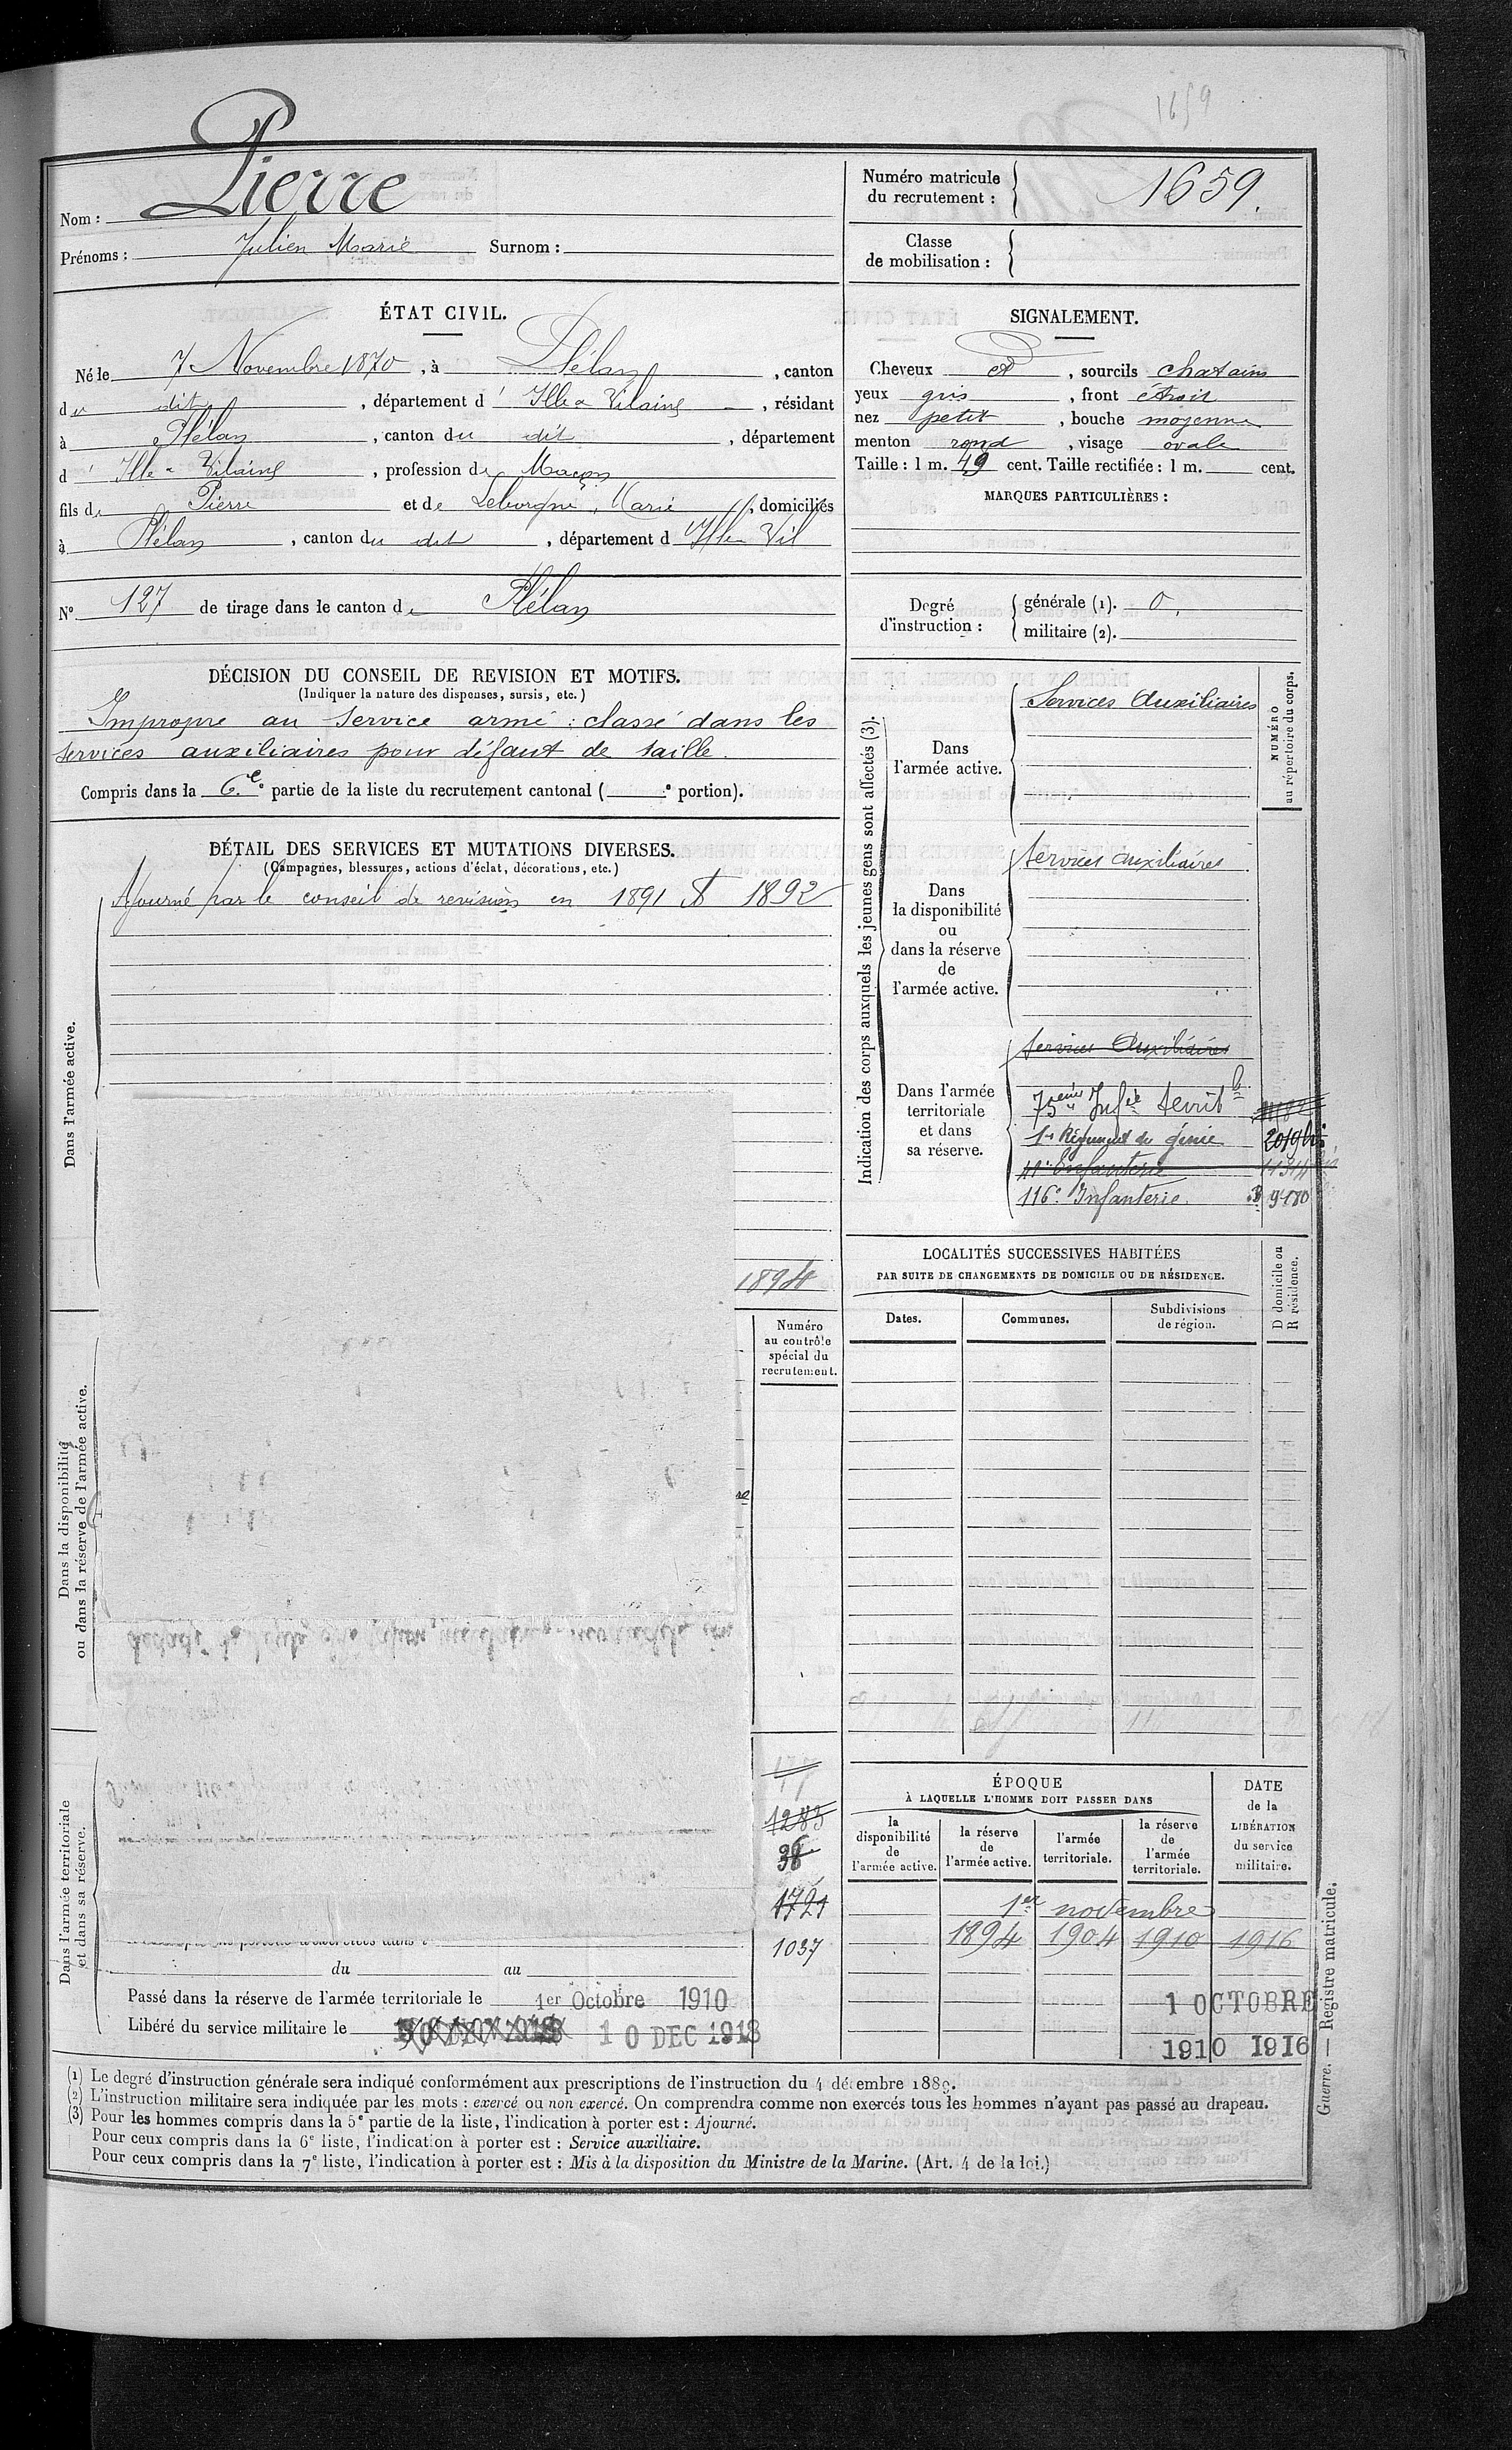 1659
Nom : Pierre
Prénoms : Julien Marie Surnom :
Numéro matricule
du recrutement : 1659.
Classe
de mobilisation :
ÉTAT CIVIL.
Né le 7 Novembre 1870, à Plélan, canton
du dit, département d'Ille & Vilaine, résidant
à Plélan, canton du dit, département
d'Ille & Vilaine, profession de Maçon
fils de Pierre et de Leborgne, Marie, domiciliés
à Plélan, canton du dit, département d'Ille Vil
N° 127 de tirage dans le canton de Plélan
SIGNALEMENT.
Cheveux et, sourcils chatains
yeux gris, front étroit
nez petit, bouche moyenne
menton rond, visage ovale
Taille : 1 m. 49 cent. Taille rectifiée : 1 m. cent.
MARQUES PARTICULIÈRES :
Degré
d'instruction :
générale (1). 0.
militaire (2).
DÉCISION DU CONSEIL DE REVISION ET MOTIFS.
(Indiquer la nature des dispenses, sursis, etc.)
Impropre au service armé : classé dans les
services auxiliaires pour défaut de taille.
Compris dans la 6e partie de la liste du recrutement cantonal ( e portion).
DÉTAIL DES SERVICES ET MUTATIONS DIVERSES.
(Campagnes, blessures, actions d'éclat, décorations, etc.)
Dans l'armée active.
Ajourné par le conseil de revision en 1891 et 1892
1894
Dans la disponibilité
ou dans la réserve de l'armée active.
Numéro
au contrôle
spécial du
recrutement.
Dans l'armée territoriale
et dans sa réserve.
1283
38
1721
1037
du au
Passé dans la réserve de l'armée territoriale le 1er Octobre 1910
Libéré du service militaire le 10 DEC 1918
Indication des corps auxquels les jeunes gens sont affectés (3).
NUMÉRO
au répertoire du corps.
Dans
l'armée active.
Services Auxiliaires
Dans
la disponibilité
ou
dans la réserve
de
l'armée active.
Services auxiliaires
Dans l'armée
territoriale
et dans
sa réserve.
Services Auxiliaires
75eme Infie territle
1er Régiment du génie
41e Infanterie
116e Infanterie. 9180
LOCALITÉS SUCCESSIVES HABITÉES
PAR SUITE DE CHANGEMENTS DE DOMICILE OU DE RÉSIDENCE.
D domicile ou
R résidence.
Dates.
Communes.
Subdivisions
de région.
ÉPOQUE
À LAQUELLE L'HOMME DOIT PASSER DANS
la
disponibilité
de
l'armée active.
la réserve
de
l'armée active.
l'armée
territoriale.
la réserve
de
l'armée
territoriale.
DATE
de la
LIBÉRATION
du service
militaire.
1er novembre
1894 1904 1910 1916
1 OCTOBRE
1910 1916
(1) Le degré d'instruction générale sera indiqué conformément aux prescriptions de l'instruction du 4 décembre 1889.
(2) L'instruction militaire sera indiquée par les mots : exercé ou non exercé. On comprendra comme non exercés tous les hommes n'ayant pas passé au drapeau.
(3) Pour les hommes compris dans la 5e partie de la liste, l'indication à porter est : Ajourné.
Pour ceux compris dans la 6e liste, l'indication à porter est : Service auxiliaire.
Pour ceux compris dans la 7e liste, l'indication à porter est : Mis à la disposition du Ministre de la Marine. (Art. 4 de la loi.)
Guerre. — Registre matricule.